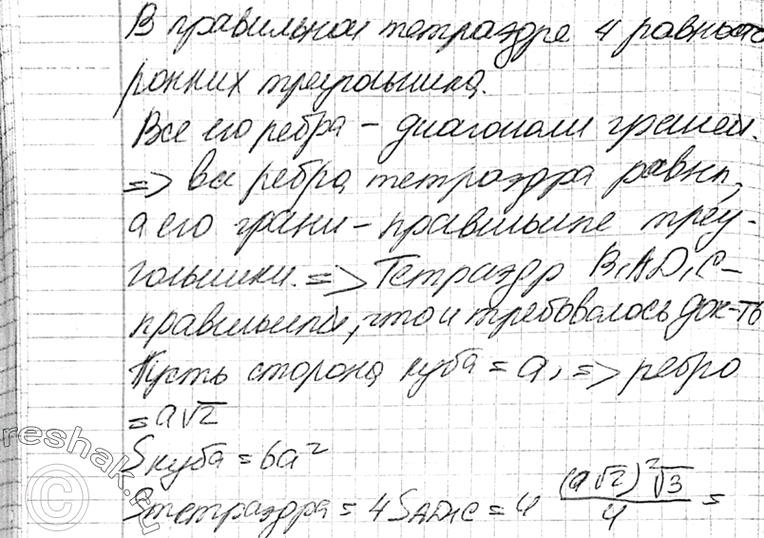 В правильном тетраэдре 4 равносто
ронних треугольника.
Все его ребра – диагонали граней.
=> все ребра тетраэдра равны,
а его грани – правильные треу-
гольники. => Тетраэдр B₁AD₁C –
правильный, что и требовалось док-ть
Пусть сторона куба = a, => ребро
= a√2
Sкуба = 6a²
Sтетраэдра = 4S_AD₁C = 4 (a√2)²√3/4 =
reshak.ru